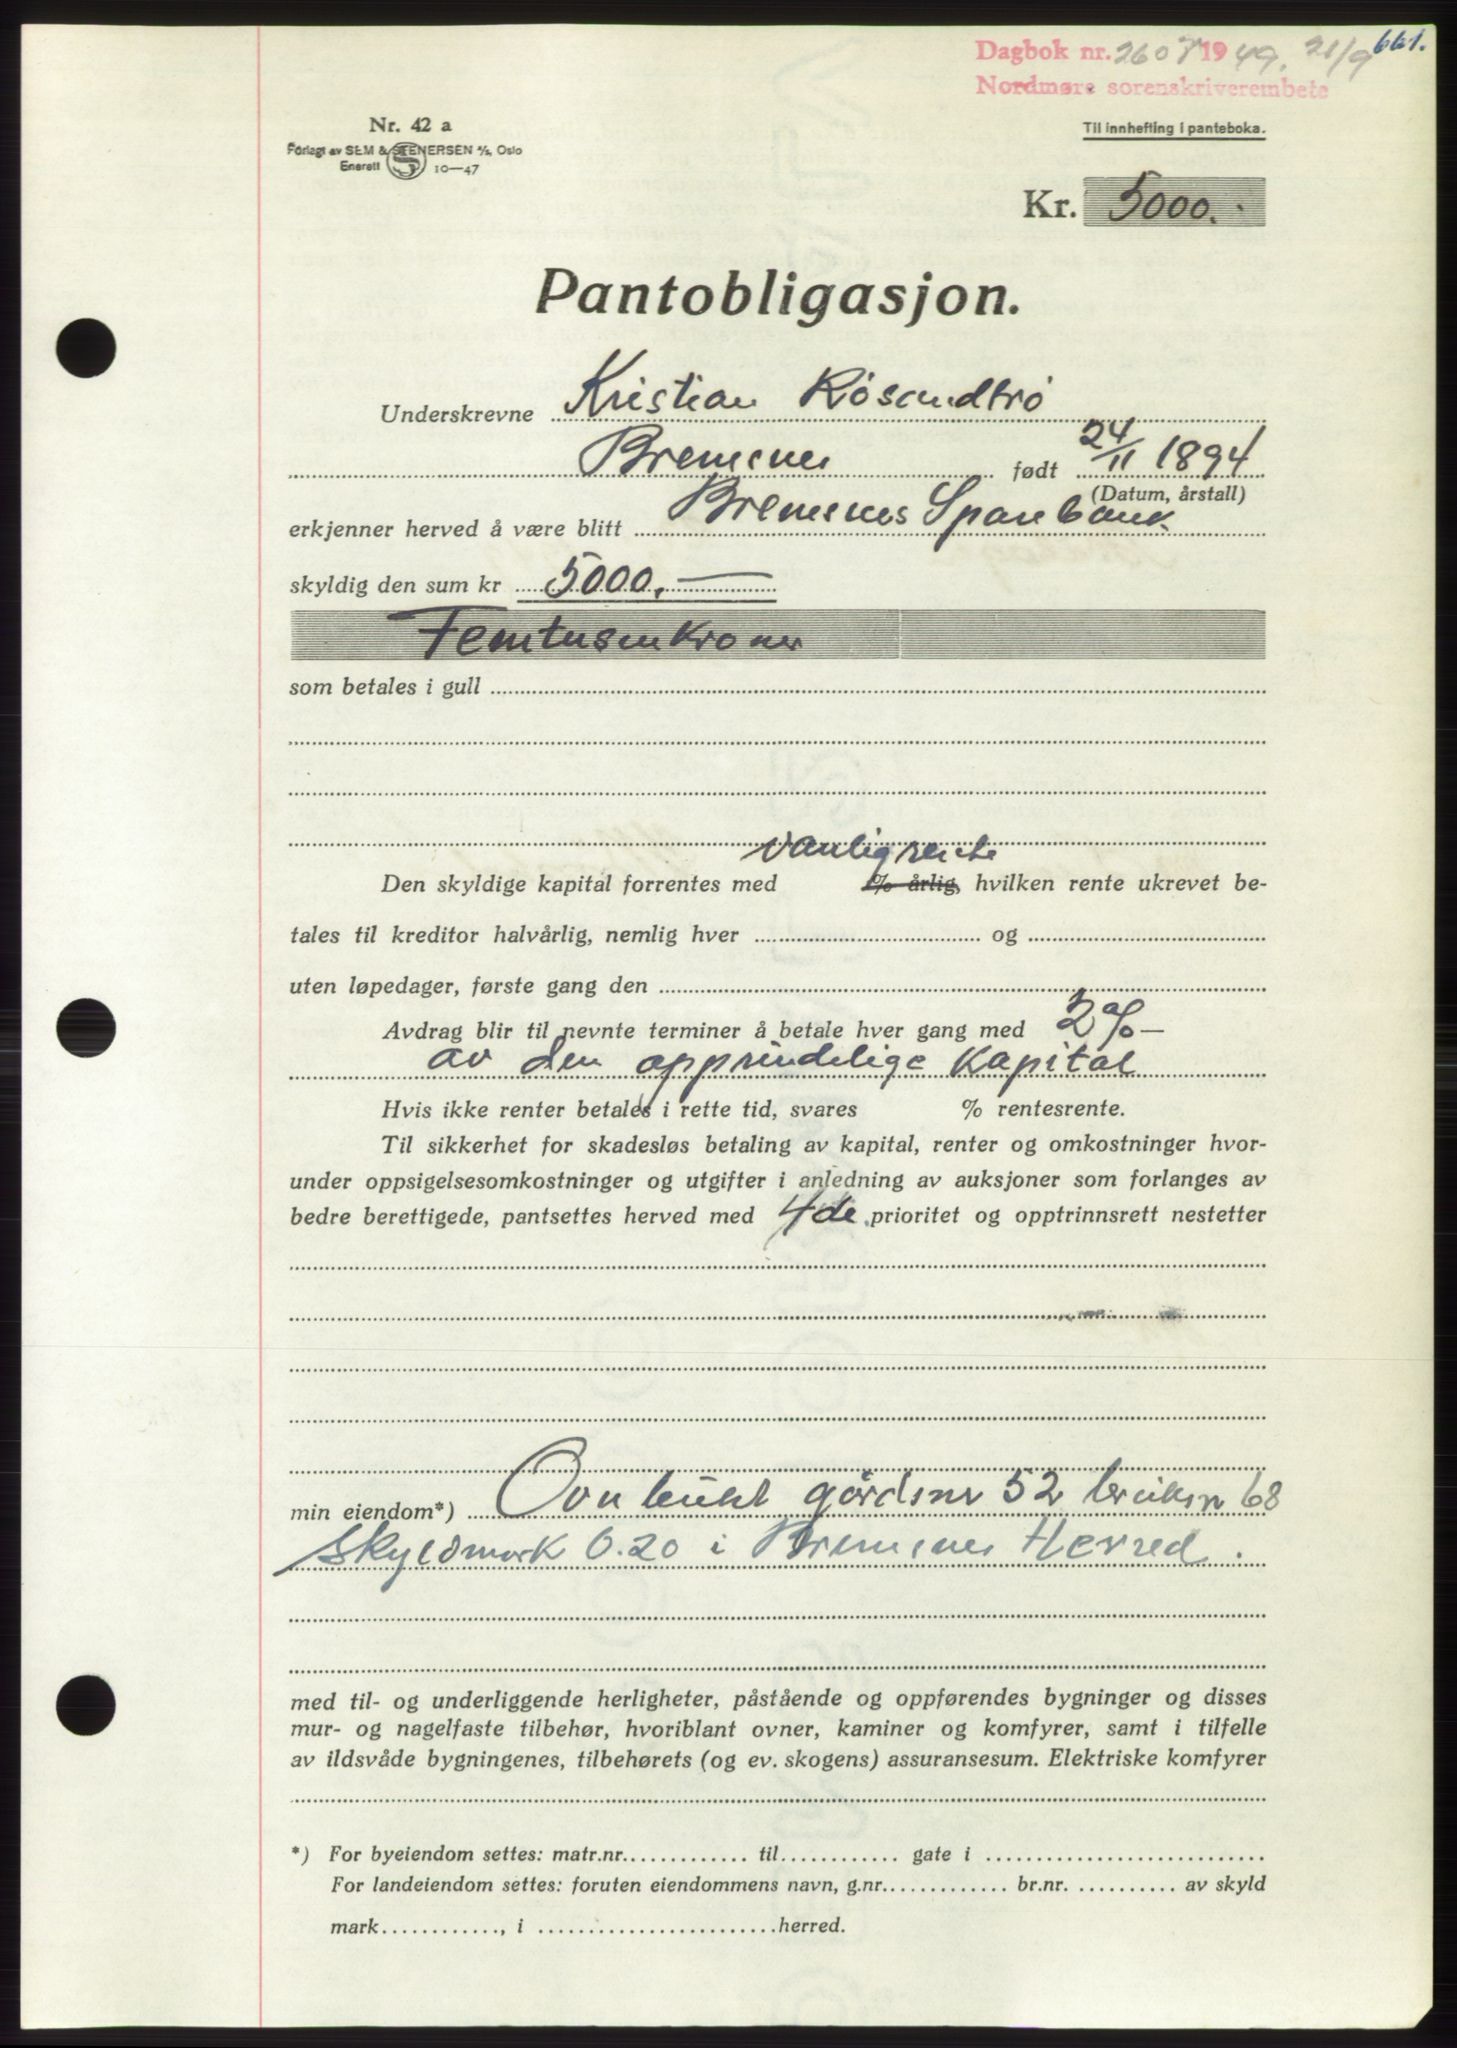 661.
Dagbok nr. 2607 1949. 21/9
Nordmøre sorenskriverembete
Nr. 42 a
Til innhefting i panteboka.
Forlagt av SEM & STENERSEN A/S, Oslo
Enerett S 10—47
Kr. 5000.-
Pantobligasjon.
Underskrevne Kristian Røsandtrø
Bremsnes født 24/11 1894
(Datum, årstall)
erkjenner herved å være blitt Bremsnes Sparebank
skyldig den sum kr 5000.—
Femtusenkroner
som betales i gull
vanlig rente
Den skyldige kapital forrentes med % årlig, hvilken rente ukrevet be-
tales til kreditor halvårlig, nemlig hver og
uten løpedager, første gang den
Avdrag blir til nevnte terminer å betale hver gang med 2% —
av den opprindelige Kapital
Hvis ikke renter betales i rette tid, svares % rentesrente.
Til sikkerhet for skadesløs betaling av kapital, renter og omkostninger hvor-
under oppsigelsesomkostninger og utgifter i anledning av auksjoner som forlanges av
bedre berettigede, pantsettes herved med 4de prioritet og opptrinnsrett nestetter
min eiendom*) gårdsnr 52 bruksnr 68
Skyldmark 0.20 i Bremsnes Herred.
med til- og underliggende herligheter, påstående og oppførendes bygninger og disses
mur- og nagelfaste tilbehør, hvoriblant ovner, kaminer og komfyrer, samt i tilfelle
av ildsvåde bygningenes, tilbehørets (og ev. skogens) assuransesum. Elektriske komfyrer
*) For byeiendom settes: matr.nr. til gate i
For landeiendom settes: foruten eiendommens navn, g.nr. br.nr. av skyld
mark, i herred.